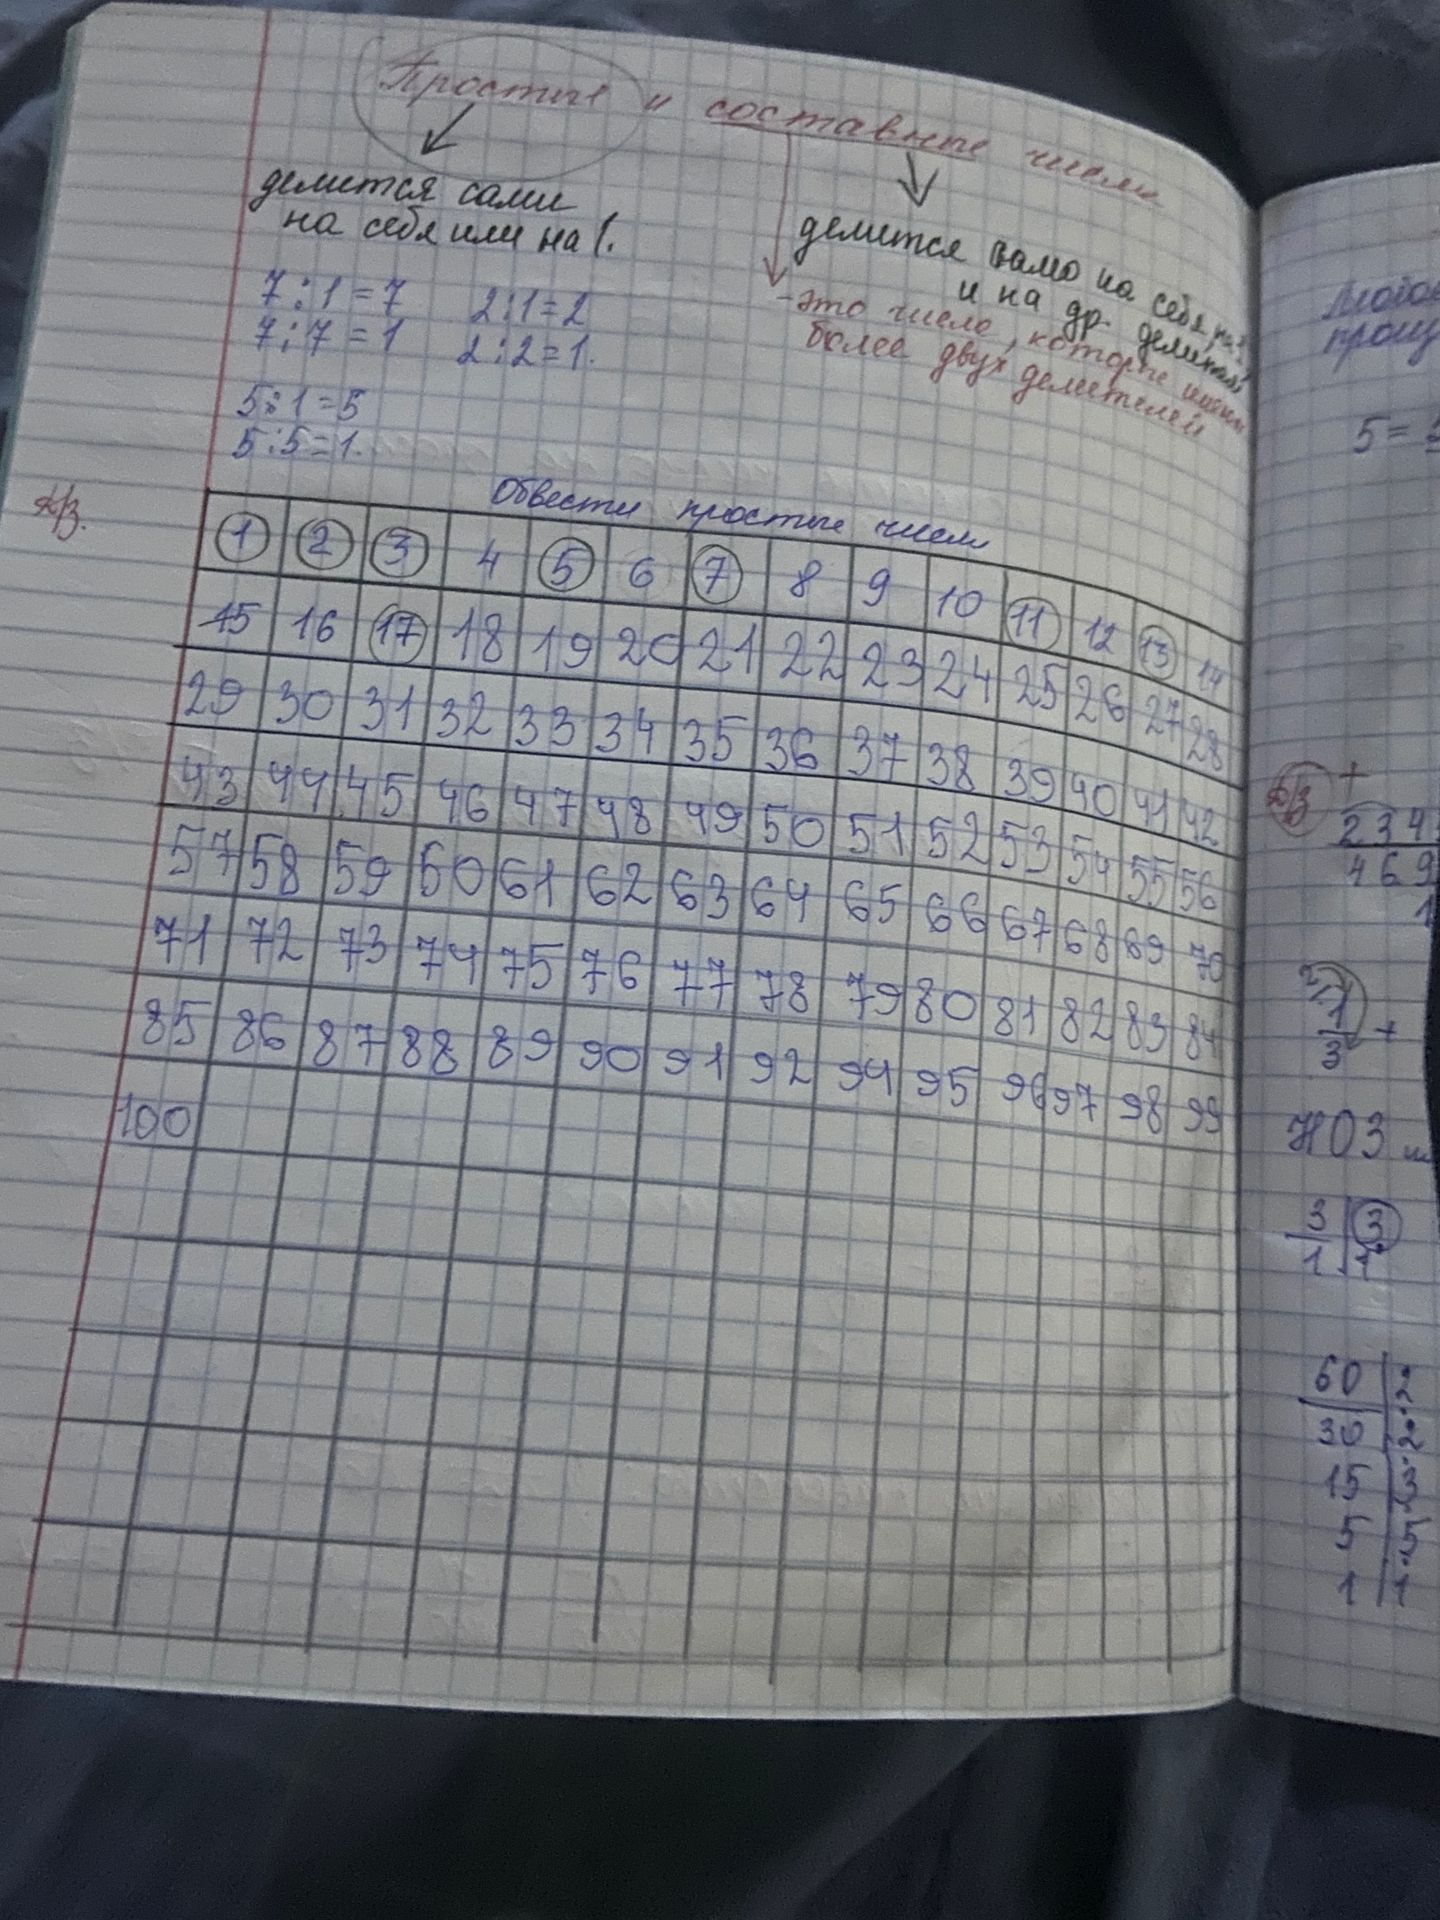 Простые и составные числа
делится сами
на себя или на 1.
делится само на себя, на 1
и на др. делители
- это число, которые имеют
более двух делителей
7:1=7 2:1=2
7:7=1 2:2=1.
5:1=5
5:5=1.
Д/З.
Обвести простые числа
1 2 3 4 5 6 7 8 9 10 11 12 13 14
15 16 17 18 19 20 21 22 23 24 25 26 27 28
29 30 31 32 33 34 35 36 37 38 39 40 41 42
43 44 45 46 47 48 49 50 51 52 53 54 55 56
57 58 59 60 61 62 63 64 65 66 67 68 69 70
71 72 73 74 75 76 77 78 79 80 81 82 83 84
85 86 87 88 89 90 91 92 94 95 96 97 98 99
100
5=
Д/З
+
234
469
1
2 1
3 +
403
3 3
1 1
60 2
30 2
15 3
5 5
1 1